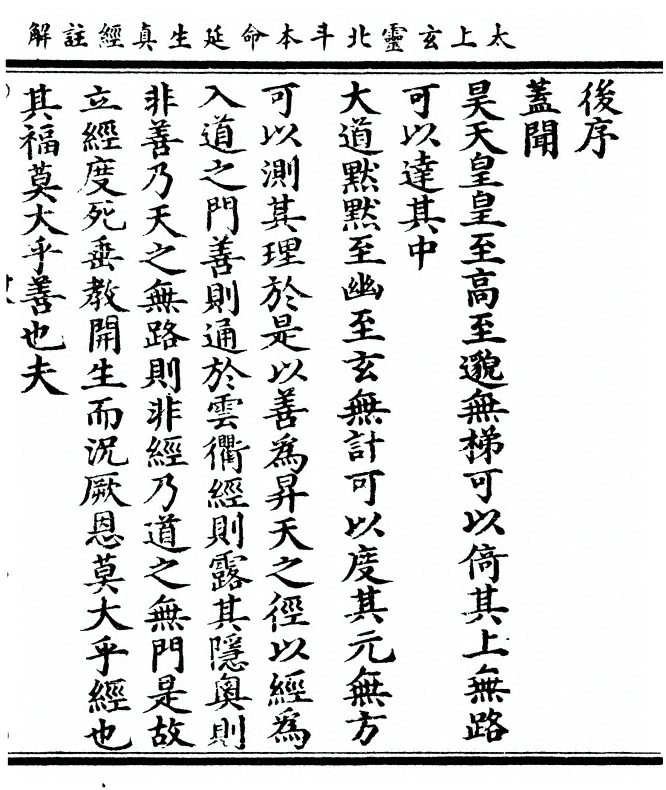 太上玄靈北斗本命延生真經註解
後序
蓋聞
昊天皇皇至高至邈無梯可以倚其上無路
可以達其中
大道默默至幽至玄無計可以度其元無方
可以測其理於是以善為昇天之徑以經為
入道之門善則通於雲衢經則露其隱奧則
非善乃天之無路則非經乃道之無門是故
立經度死垂教開生而況厥恩莫大乎經也
其福莫大乎善也夫